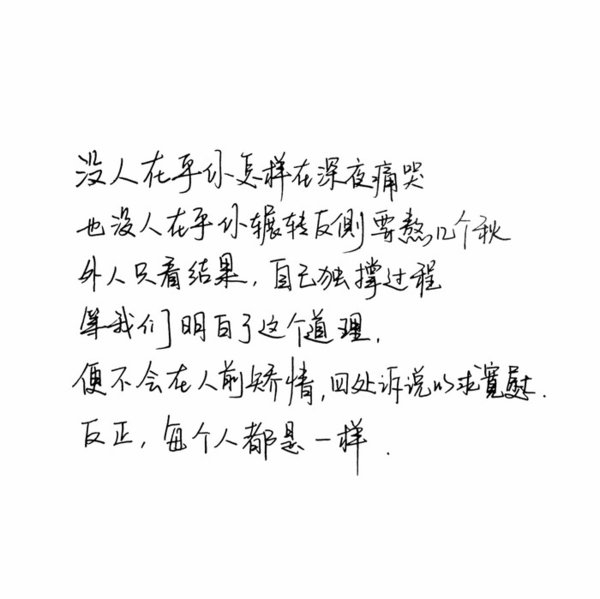 没人在乎你怎样在深夜痛哭
也没人在乎你辗转反侧要熬几个秋
外人只看结果，自己独撑过程
等我们明白了这个道理，
便不会在人前矫情，四处诉说以求宽慰．
反正，每个人都是一样．